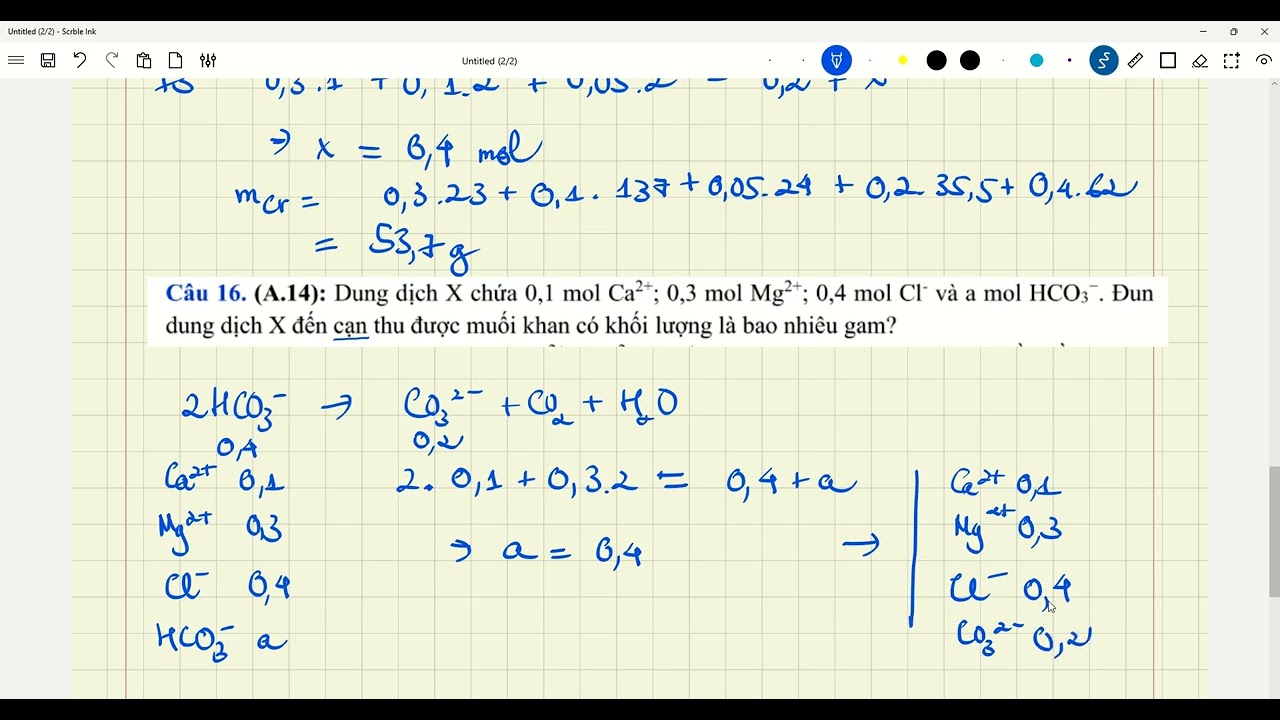 Untitled (2/2) - Scrble Ink
Untitled (2/2)
0,3.1 + 0,1.2 + 0,05.2 = 0,2 + x
=> x = 0,4 mol
mcr = 0,3.23 + 0,1.137 + 0,05.24 + 0,2.35,5 + 0,4.62
= 53,7g
Câu 16. (A.14): Dung dịch X chứa 0,1 mol Ca²⁺; 0,3 mol Mg²⁺; 0,4 mol Cl⁻ và a mol HCO₃⁻. Đun
dung dịch X đến cạn thu được muối khan có khối lượng là bao nhiêu gam?
2HCO₃⁻ → CO₃²⁻ + CO₂ + H₂O
0,4 0,2
Ca²⁺ 0,1 2.0,1 + 0,3.2 = 0,4 + a Ca²⁺ 0,1
Mg²⁺ 0,3 => a = 0,4 → Mg²⁺ 0,3
Cl⁻ 0,4 Cl⁻ 0,4
HCO₃⁻ a CO₃²⁻ 0,2